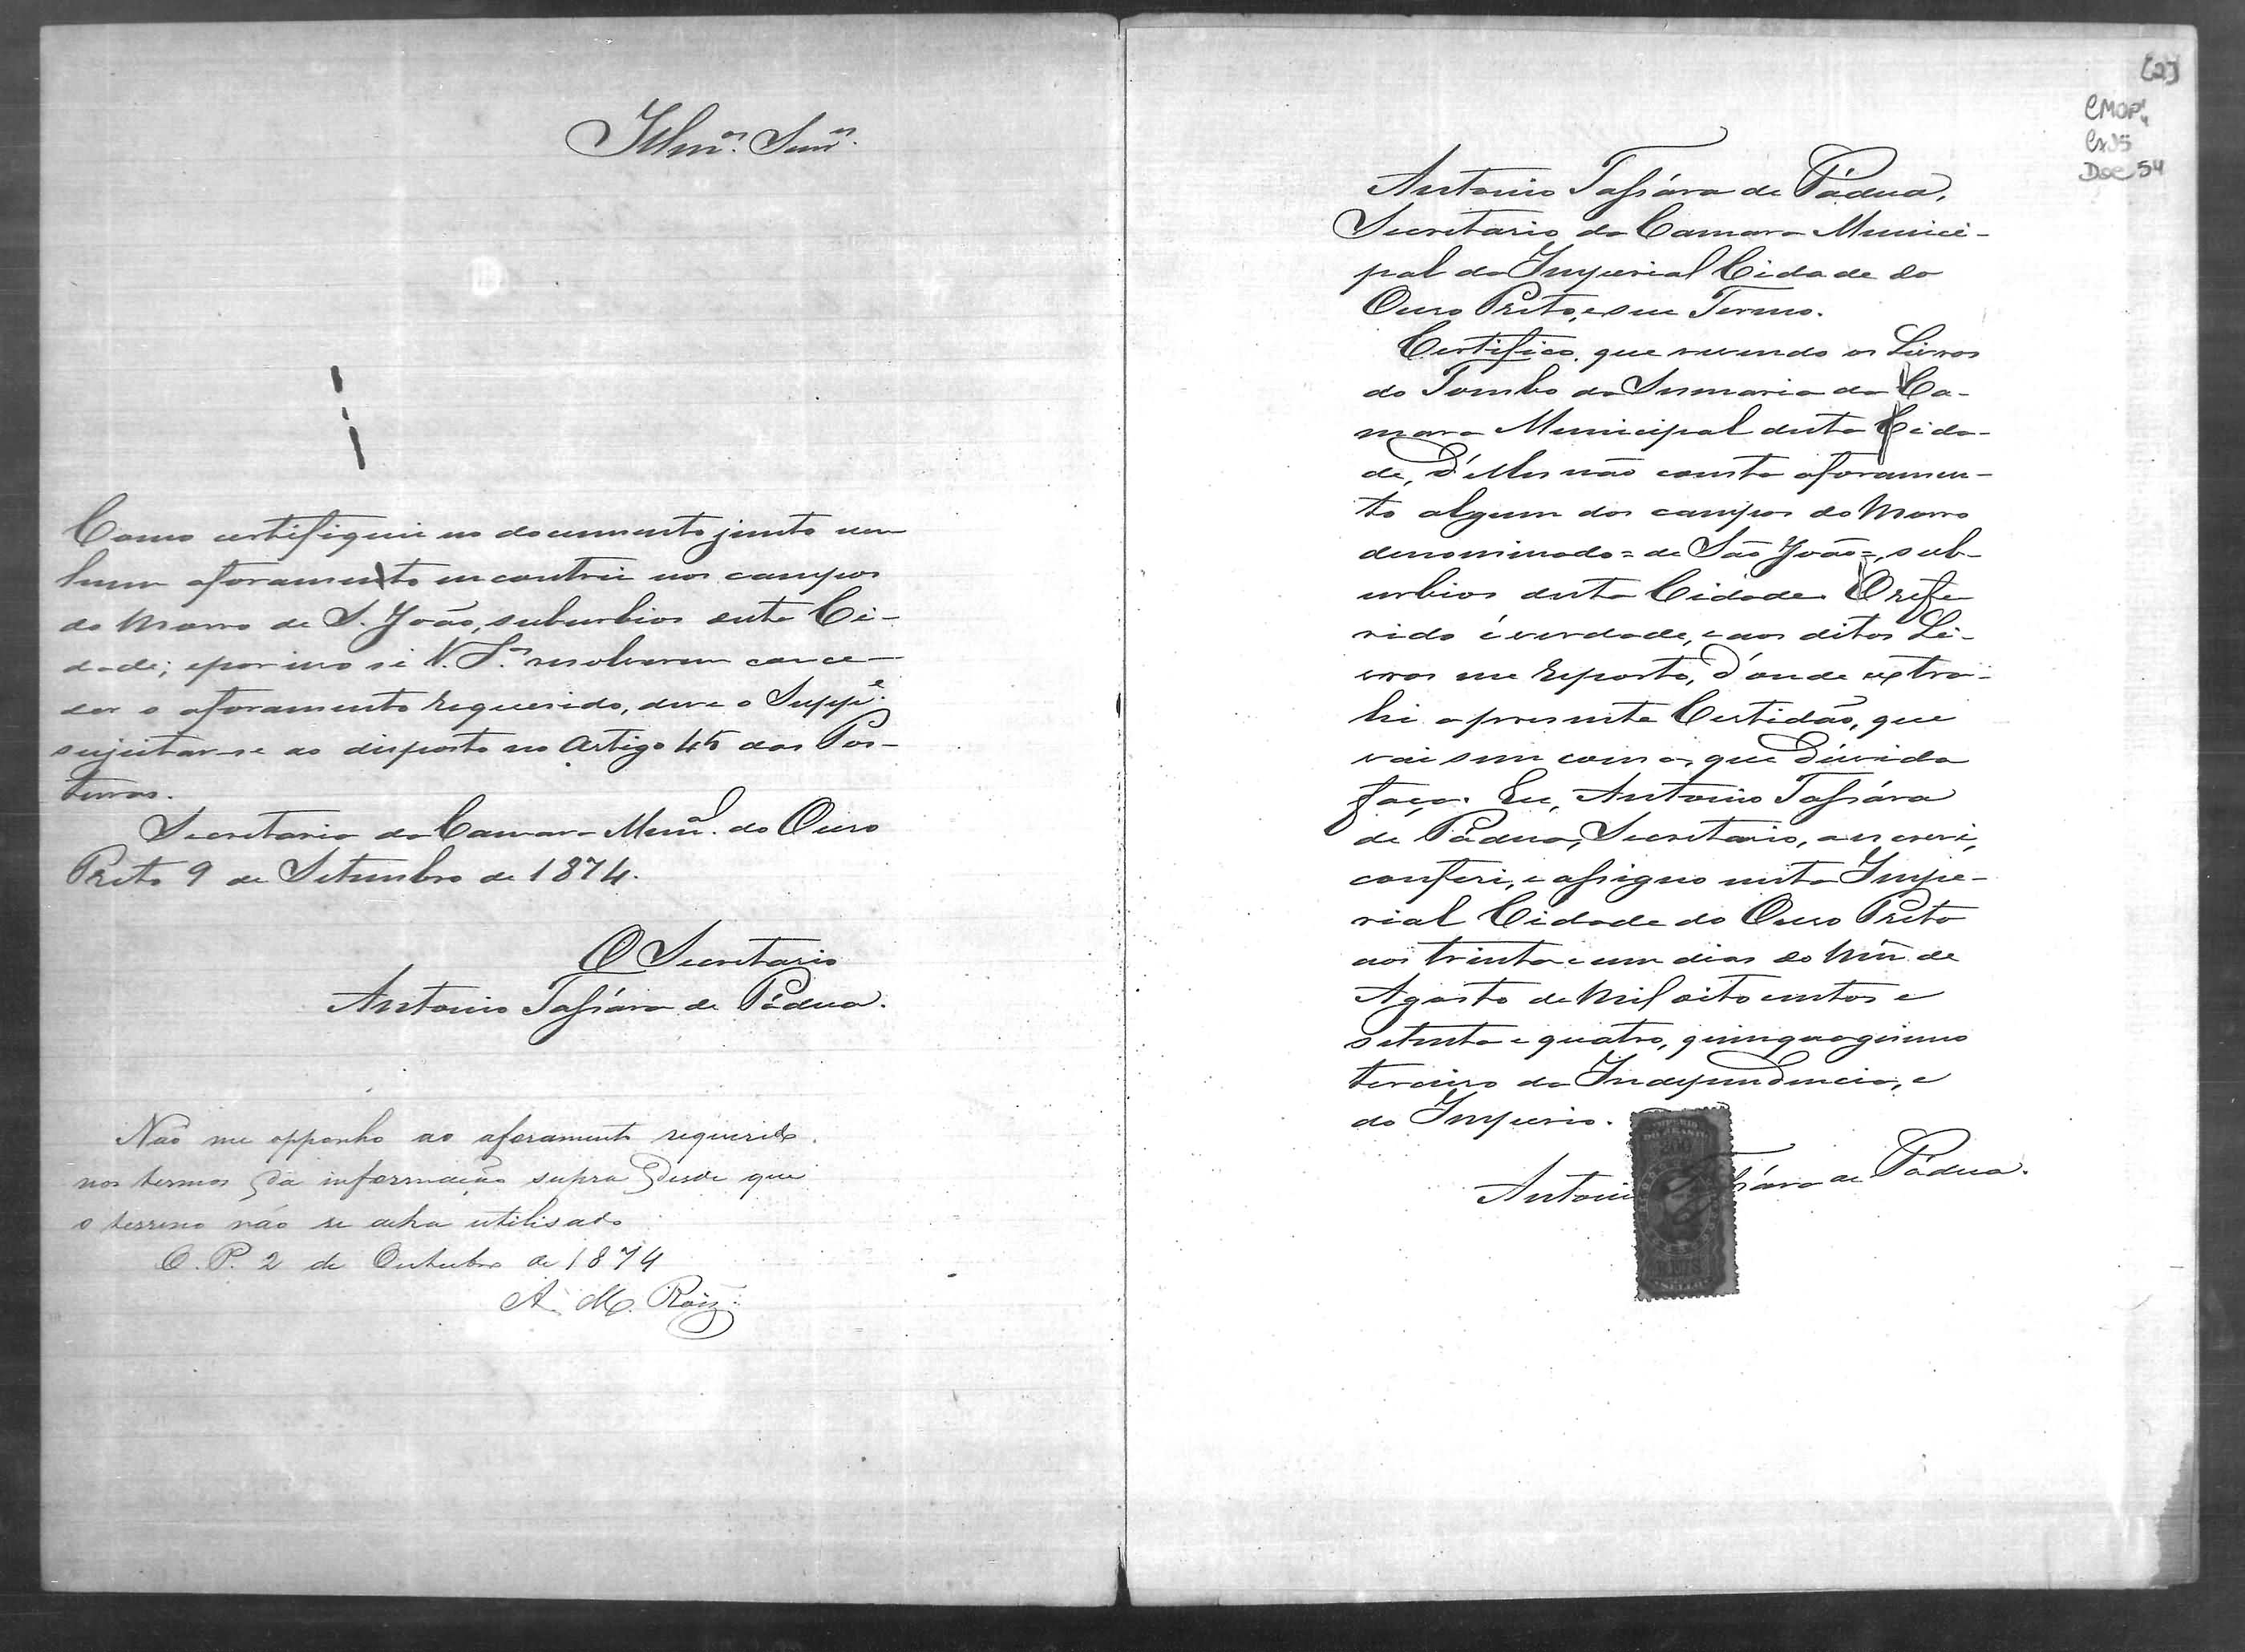 Illm.os Snr.es
Como certifiquei no documento junto nen
hum aforamento encontrei nos campos
do Morro de S. João, suburbios desta Ci-
dade; e por isso si V. S.as resolverem conce-
der o aforamento requerido, deve o Supp.e
sujeitar-se ao disposto no Artigo 45 das Pos-
turas.
Secretaria da Camara Mun.al do Ouro
Preto 9 de Setembro de 1874.
O Secretario
Antonio Tassára de Pádua.
Não me opponho ao aforamento requerido
nos termos da informação supra desde que
o terreno não se acha utilisado
O. P. 2 de Outubro de 1874
A. M. Roiz
[2]
CMOP
Cx 05
Doc 54
Antonio Tassára de Pádua,
Secretario da Camara Munici-
pal da Imperial Cidade do
Ouro Preto, e seu Termo.
Certifico, que revendo os Livros
do Tombo da Sesmaria da Ca-
mara Municipal desta Cida-
de, d'elles não consta aforamen-
to algum dos campos do Morro
denominado = de São João =, sub-
urbios desta Cidade. O refe
rido é verdade, e aos ditos Li-
vros me reporto, d'onde extra-
hi a presente Certidão, que
vai sem cousa, que dúvida
faça. Eu, Antonio Tassára
de Pádua, Secretario, a escrevi,
conferi, e assigno nesta Impe-
rial Cidade do Ouro Preto
aos trinta e um dias do Mez de
Agosto de Mil oito centos e
setenta e quatro, quinquagesimo
terceiro da Independencia, e
do Imperio.
Antonio Tassára de Pádua.
IMPERIO
DO BRASIL
200
REIS